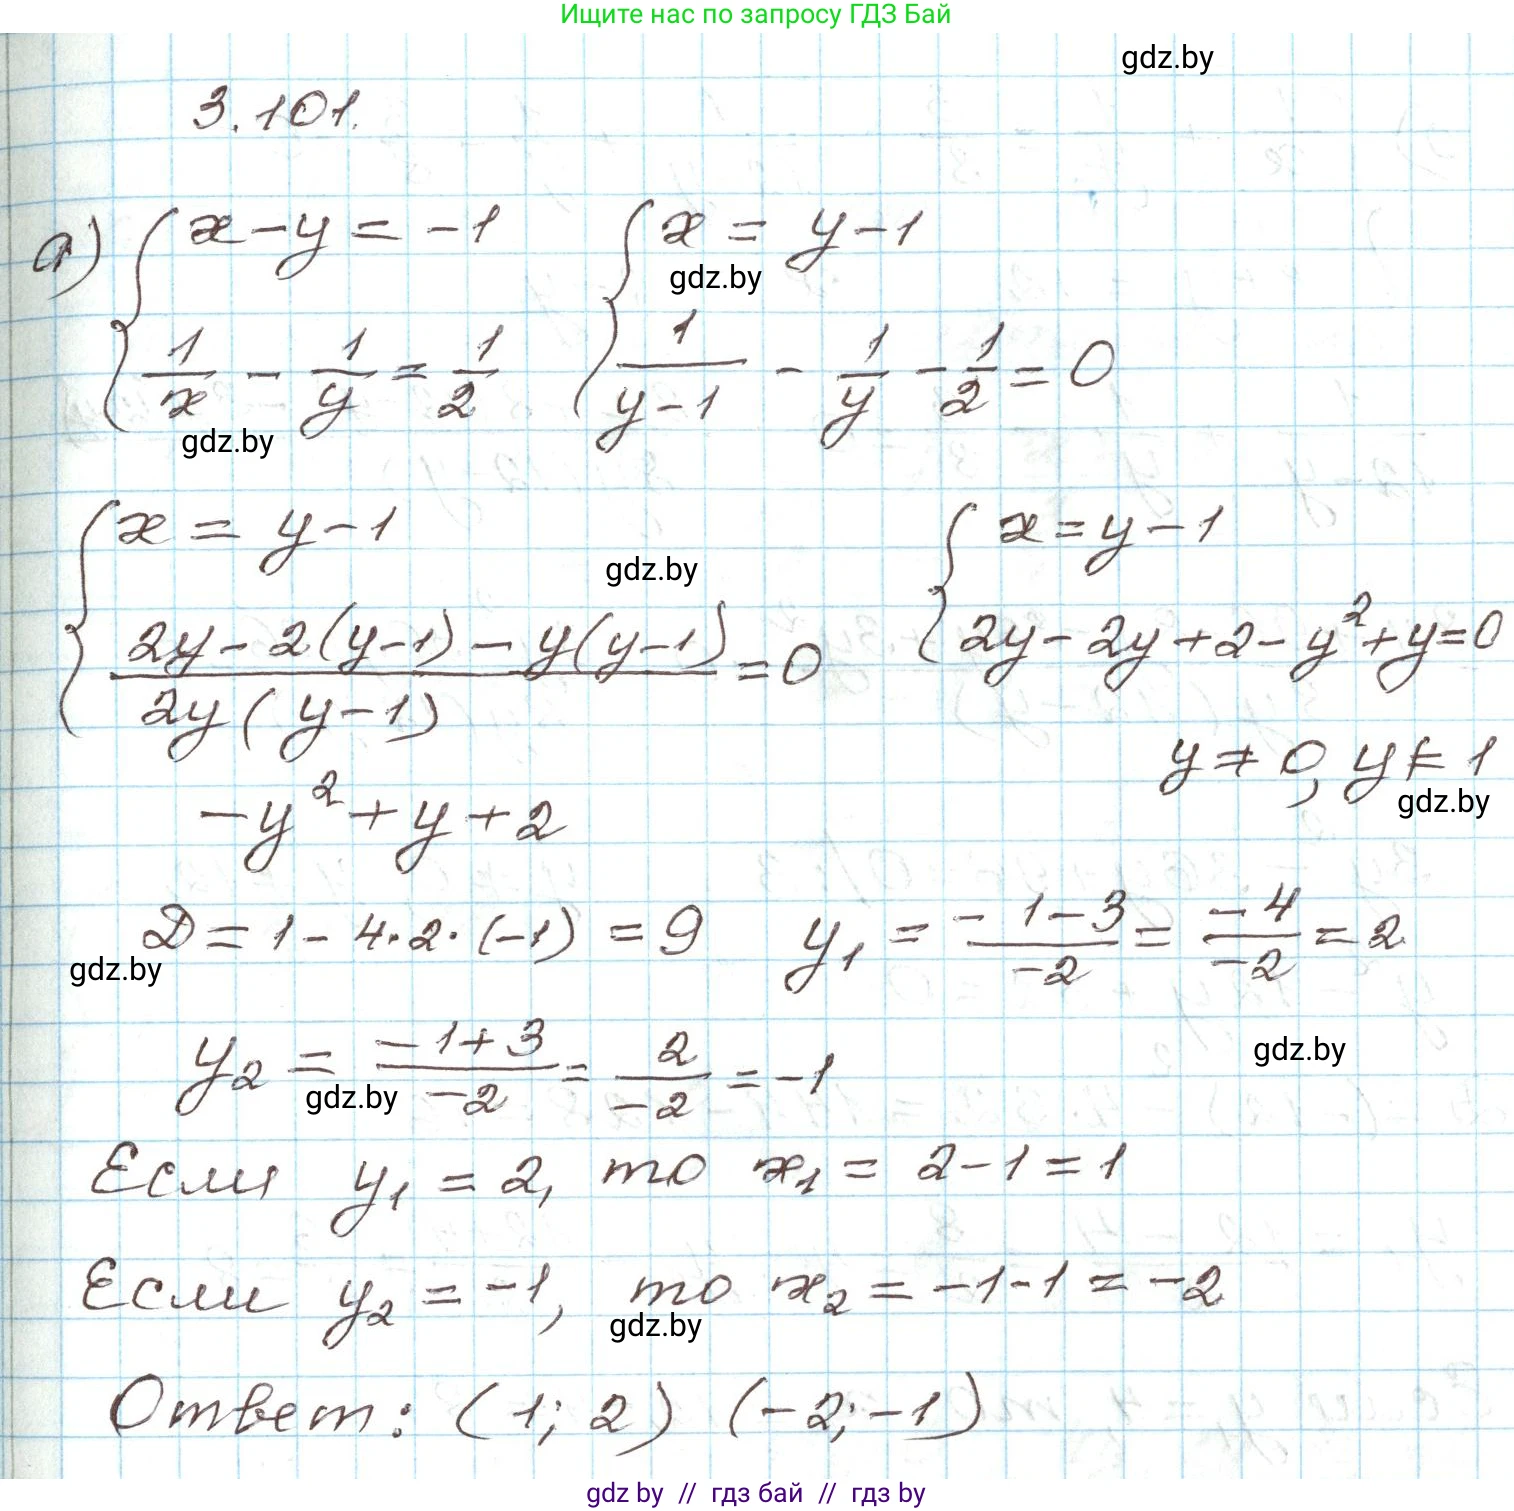 Ищите нас по запросу ГДЗ Бай
gdz.by
3.101.
а) { x - y = -1 { x = y - 1
gdz.by
1/x - 1/y = 1/2 1/(y-1) - 1/y - 1/2 = 0
gdz.by
{ x = y - 1 { x = y - 1
gdz.by
(2y - 2(y-1) - y(y-1))/(2y(y-1)) = 0 2y - 2y + 2 - y² + y = 0
y ≠ 0, y ≠ 1
gdz.by
-y² + y + 2
D = 1 - 4·2·(-1) = 9 y₁ = (-1-3)/(-2) = (-4)/(-2) = 2
gdz.by
y₂ = (-1+3)/(-2) = 2/(-2) = -1
gdz.by
gdz.by
Если y₁ = 2, то x₁ = 2 - 1 = 1
Если y₂ = -1, то x₂ = -1 - 1 = -2
gdz.by
Ответ: (1; 2) (-2; -1)
gdz.by // гдз бай // гдз by